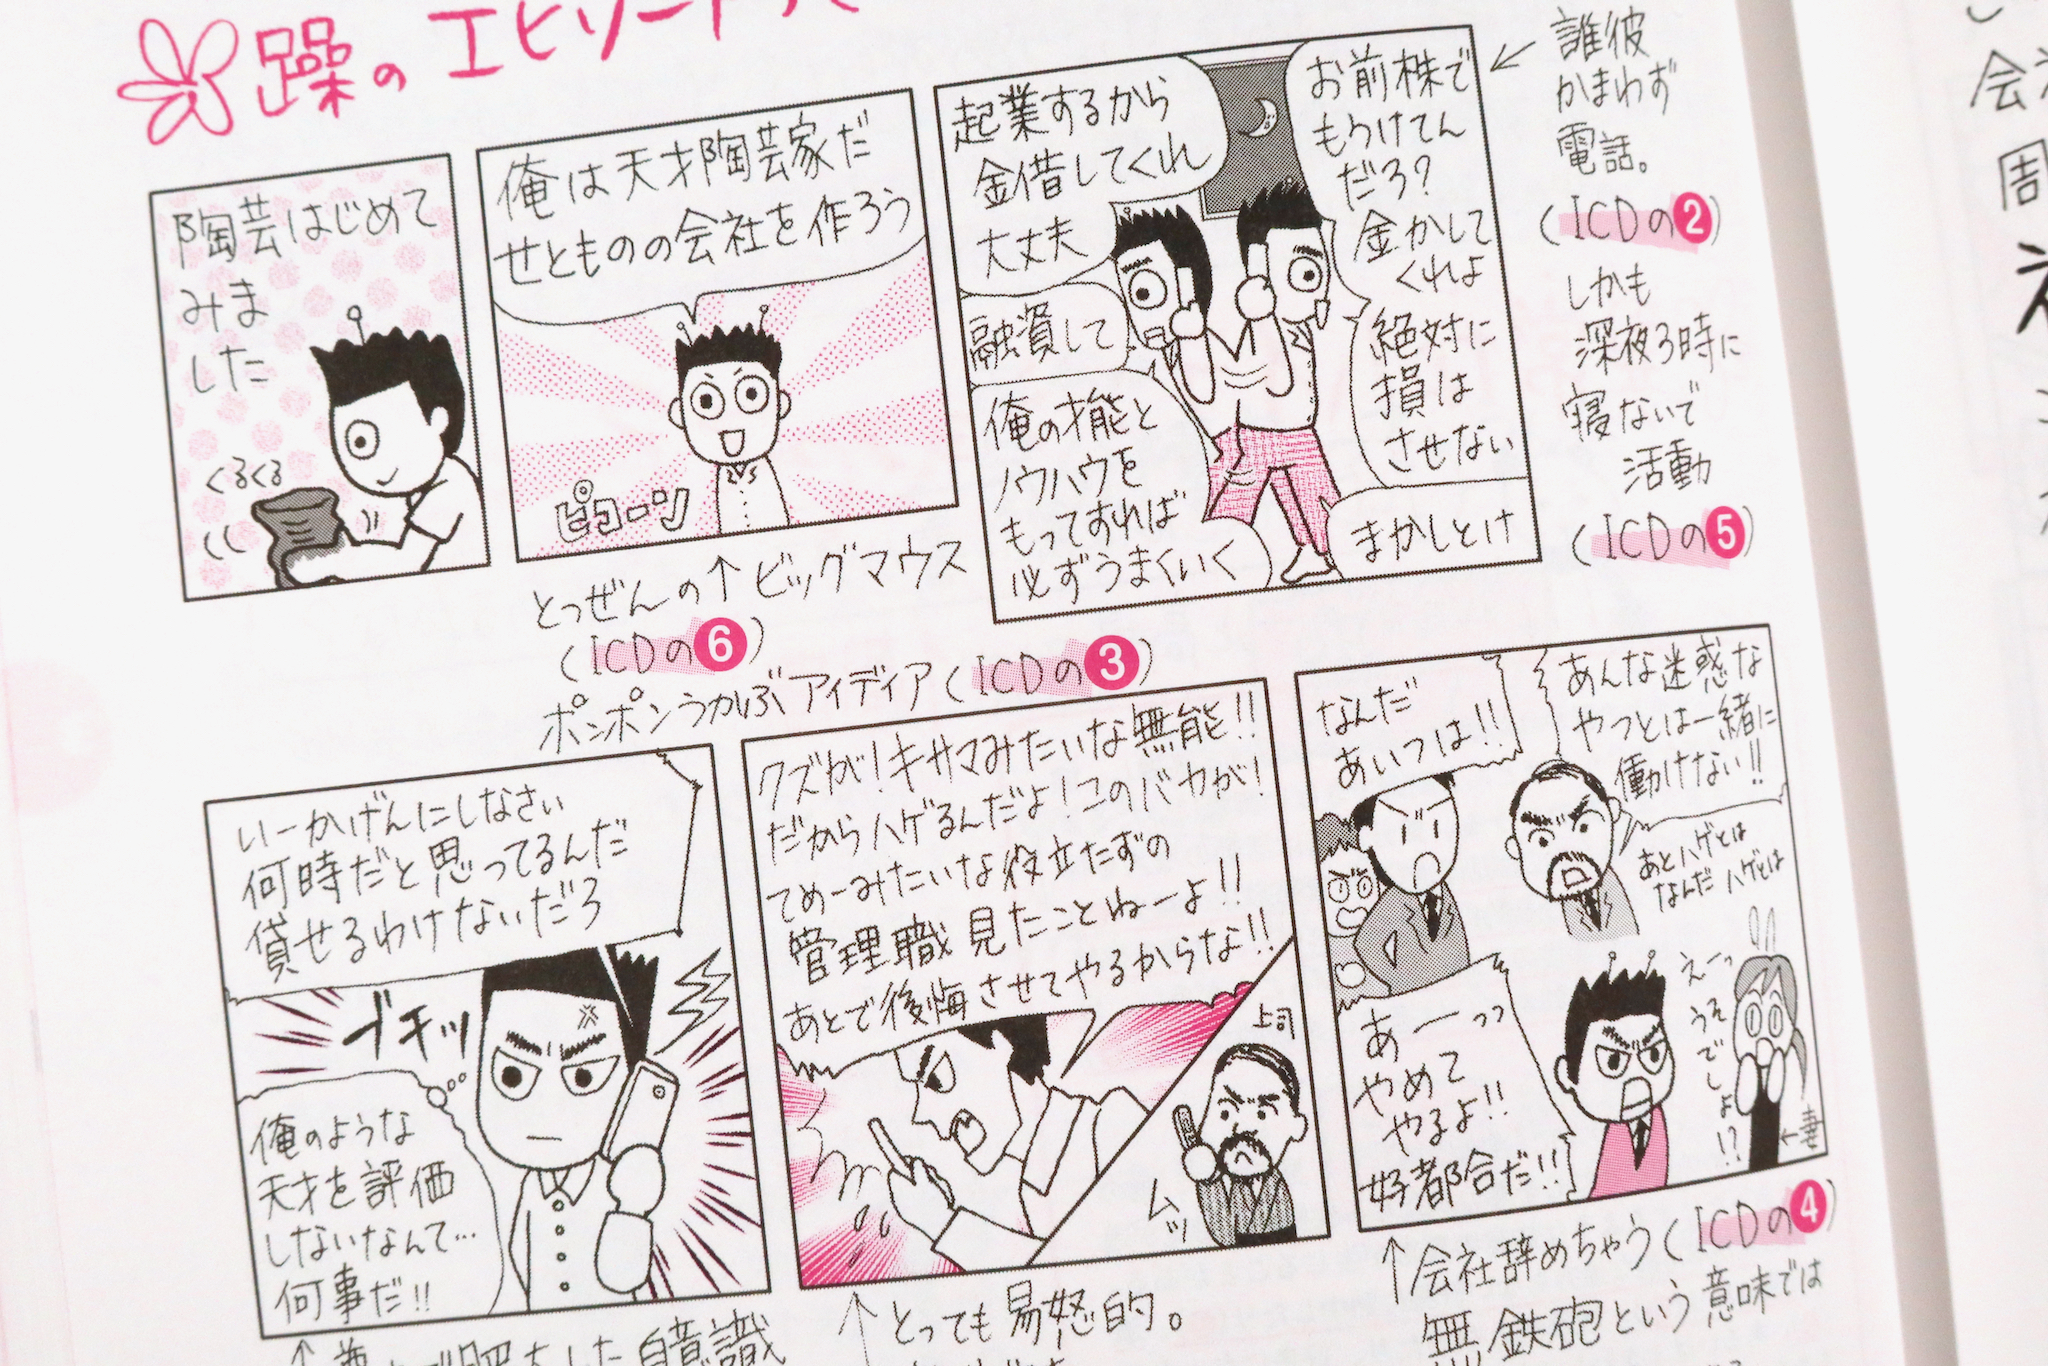 躁のエピソード
陶芸はじめて
みま
した
くるくる
俺は天才陶芸家だ
せとものの会社を作ろう
ピコーン
起業するから
金借してくれ
大丈夫
融資して
俺の才能と
ノウハウを
もってすれば
必ずうまくいく
お前株で
もうけてん
だろ?
金かして
くれよ
絶対に
損は
させない
まかしとけ
誰彼
かまわず
電話。
(ICDの2)
しかも
深夜3時に
寝ないで
活動
(ICDの5)
とつぜんの↑ビッグマウス
(ICDの6)
ポンポンうかぶアイディア(ICDの3)
いーかげんにしなさい
何時だと思ってるんだ
貸せるわけないだろ
ブチッ
俺のような
天才を評価
しないなんて…
何事だ!!
クズが!キサマみたいな無能!!
だからハゲるんだよ!このバカが!
てめーみたいな役立たずの
管理職見たことねーよ!!
あとで後悔させてやるからな!!
上司
ムッ
なんだ
あいつは!!
あんな迷惑な
やつとは一緒に
働けない!!
あとハゲとは
なんだハゲとは
あーっっ
やめて
やるよ!!
好都合だ!!
えーっ
うそでしょ!?
←妻
↑とっても易怒的。
↑会社辞めちゃう(ICDの4)
無鉄砲という意味では
した自意識
会
周